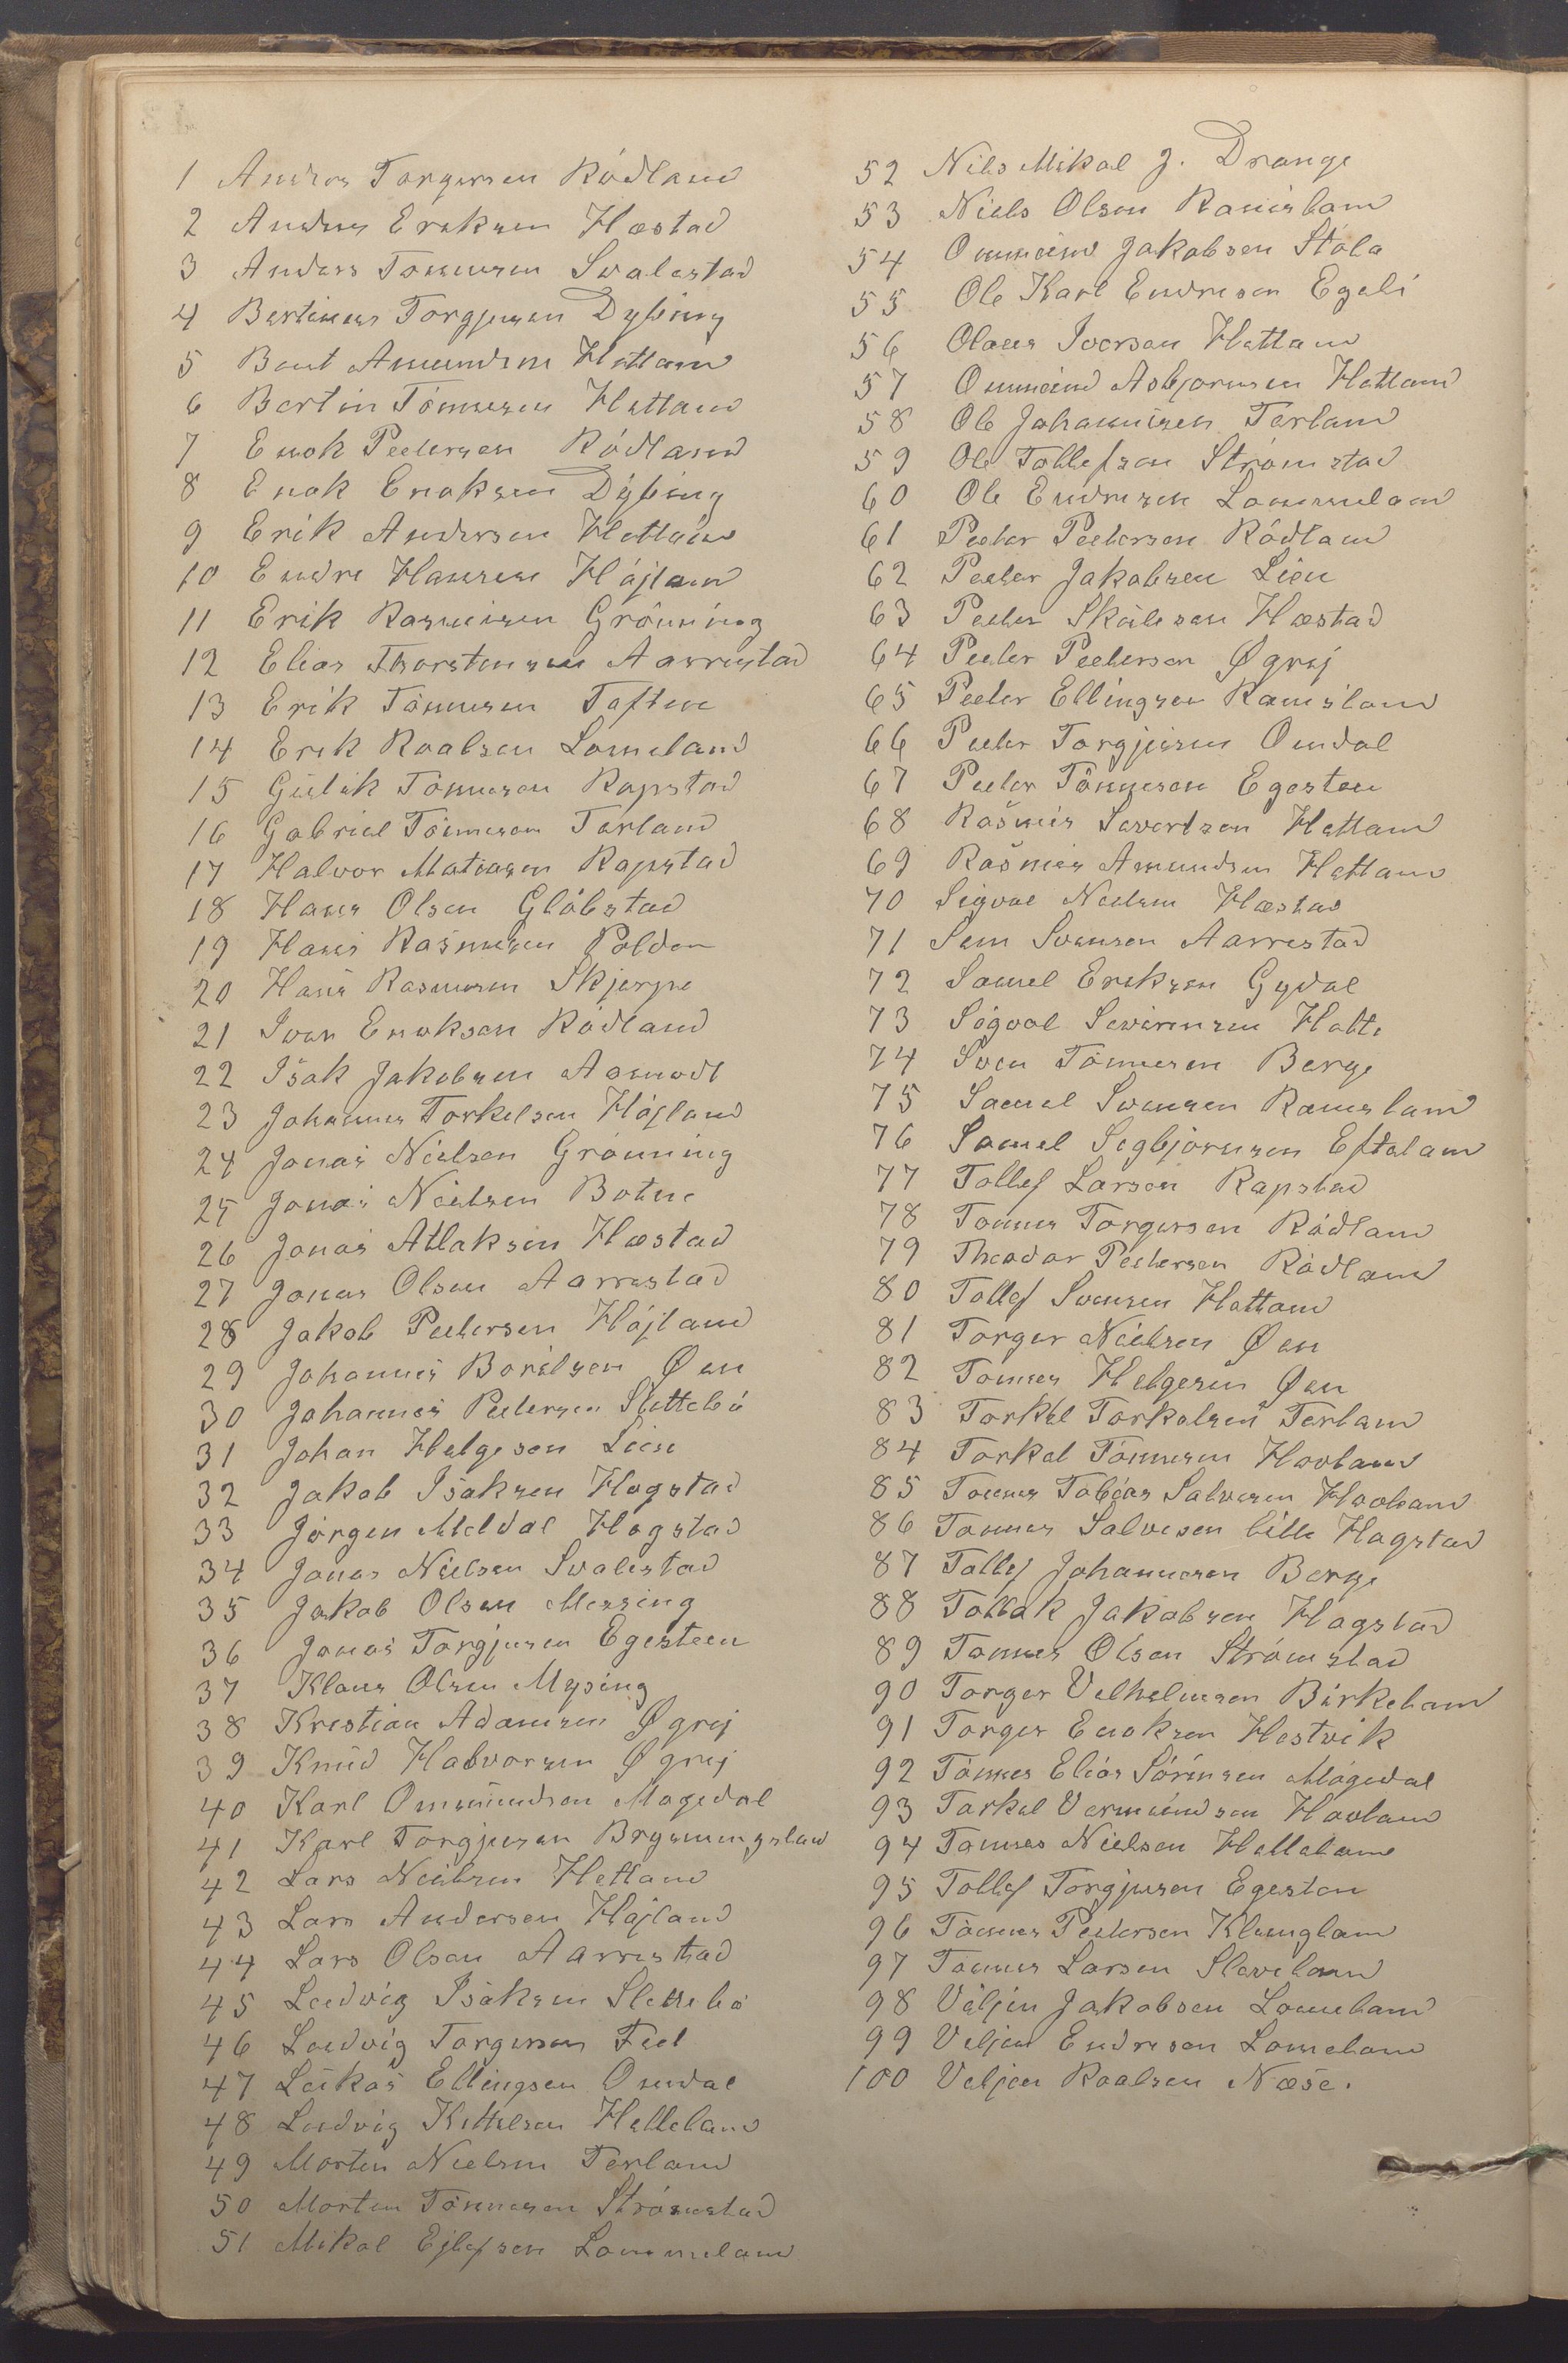 1 Andres Torgersen Rödland
2 Andres Eriksen Hæstad
3 Anders Tönnesen Svalestad
4 Bertinius Torgjusen Dybing
5 Bent Amundsen Hetland
6 Bertin Tönnesen Hetland
7 Enok Peedersen Rödland
8 Enok Enoksen Dybing
9 Erik Andersen Hetland
10 Endre Hansen Höjland
11 Erik Rasmusen Grönning
12 Elias Thorstensen Aarrestad
13 Erik Tönnesen Toften
14 Erik Roalsen Lomeland
15 Gulik Tönnesen Rapstad
16 Gabriel Tönnesen Tærland
17 Halvor Matiasen Rapstad
18 Hans Olsen Glöbstad
19 Hans Rasmusen Polden
20 Hans Rasmusen Skjerpe
21 Iver Enoksen Rödland
22 Isak Jakobsen Aamodt
23 Johannes Torkelsen Höjland
24 Jonas Nielsen Grönning
25 Jonas Nielsen Botne
26 Jonas Atlaksen Hæstad
27 Jonas Olsen Aarrestad
28 Jakob Peedersen Höjland
29 Johannes Borilsen Øen
30 Johannes Peedersen Slettebö
31 Johan Helgesen Lien
32 Jakob Isaksen Hogstad
33 Jörgen Meldal Hogstad
34 Jonas Nielsen Svalestad
35 Jakob Olsen Messing
36 Jonas Torgjusen Egesteen
37 Klaus Olsen Mysing
38 Kristian Adamsen Øgrej
39 Knud Halvorsen Øgrej
40 Karl Omsundsen Mogedal
41 Karl Torgjusen Brynningsland
42 Lars Nielsen Hetland
43 Lars Andersen Höjland
44 Lars Olsen Aarrestad
45 Ludvig Isaksen Slettebö
46 Ludvig Torgersen Feed
47 Lukas Ellingsen Omdal
48 Ludvig Kittelsen Helleland
49 Morten Nielsen Terland
50 Morten Tönnesen Strömstad
51 Mikal Ejlefsen Lommeland
52 Nils Mikal J. Drange
53 Niels Olsen Ramsland
54 Ommund Jakobsen Stöla
55 Ole Karl Endresen Egeli
56 Olaus Iversen Hetland
57 Ommund Asbjornsen Hetland
58 Ole Johannesen Terland
59 Ole Tollefsen Strömstad
60 Ole Endresen Lommeland
61 Peeder Peedersen Rödland
62 Peeder Jakobsen Lien
63 Peeder Skulesen Hæstad
64 Peeder Peedersen Øgrej
65 Peeder Ellingsen Ramsland
66 Peeder Torgjusen Omdal
67 Peeder Tönnesen Egesteen
68 Rasmus Severtsen Hetland
69 Rasmus Amundsen Hetland
70 Sigval Nielsen Hæstad
71 Sem Svensen Aarrestad
72 Samel Eriksen Gydal
73 Sigval Severinsen Hatte
74 Sven Tönnesen Berge
75 Samel Svensen Ramsland
76 Samel Segbjörnsen Efteland
77 Tollef Larsen Rapstad
78 Tönnes Torgersen Rödland
79 Theodor Peedersen Rödland
80 Tollef Svensen Hetland
81 Torger Nielsen Øen
82 Tönnes Helgesen Øen
83 Torkel Torkelsen Terland
84 Torkel Tönnesen Hovland
85 Tönnes Tobias Salvesen Hovland
86 Tönnes Salvesen lille Hogstad
87 Tollef Johannesen Berge
88 Tollak Jakobsen Hogstad
89 Tönnes Olsen Strömstad
90 Torger Velhelmsen Birkeland
91 Torger Enoksen Hestvik
92 Tönnes Elias Sörensen Mögedal
93 Torkel Vermundsen Hovland
94 Tönnes Nielsen Helleland
95 Tollef Torgjusen Egesten
96 Tönnes Peedersen Klungland
97 Tönnes Larsen Sleveland
98 Veljen Jakobsen Lomeland
99 Veljen Endresen Lomeland
100 Veljen Roalsen Næse.